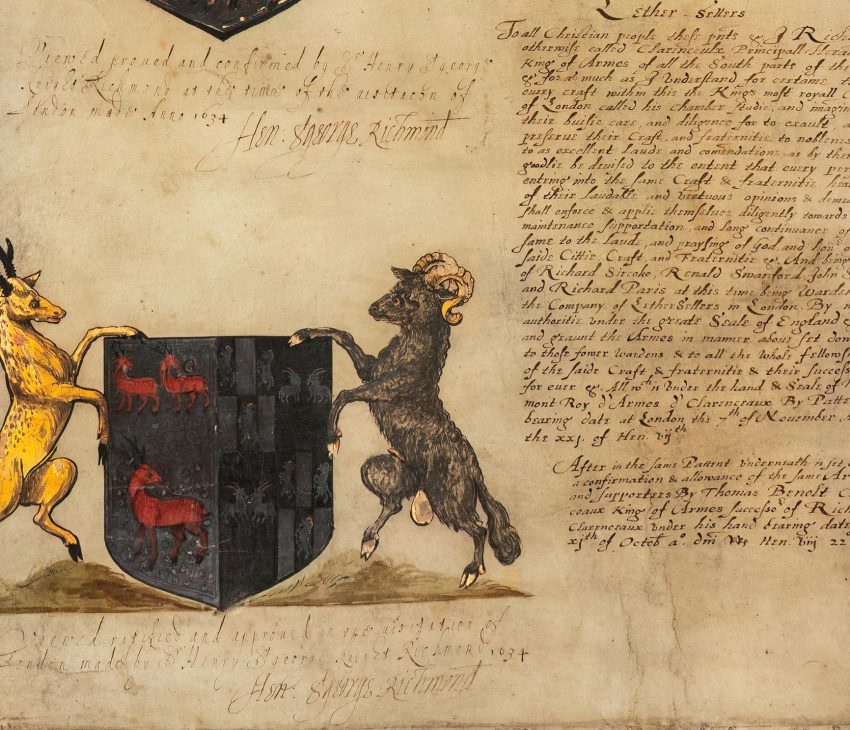 Viewed proued and confirmed by Sr Henry St george
Knight Richmond at the time of the visitacon of
London made Anno 1634
Hen: St george Richmond
Viewed ratified and approued in the visitation of
London made by Sr Henry St george Knight Richmond 1634
Hen: St george Richmond
Lether-Sellers
To all Christian people these pnts &c J Rich
otherwise called Clarenceulx Principall Hera
King of Armes of all the South parts of th
& for as much as J vnderstand for certaine t
every craft within this the Kings most royall C
of London called his chamber studie, and imagin
their busie care, and diligence for to exault a
preserue their Craft, and fraternitie to noblenes
to as excellent laude and comendations as by ther
goodlie be deuised to the entent that euery per
entring into the same Craft & fraternitie
of their laudable and vertuous opinions & deme
shall enforce & applie themselues diligently towards
maintenance supportation, and long continuance of
same to the laude, and praysing of God, and
saide Cittie, Craft, and Fraternitie &c And being
of Richard Sircoke, Renald Swanford John S
and Richard Paris at this time being Warden
the Company of LetherSellers in London. By
authoritie vnder the greate Seale of England
and graunt the Armes in manner aboue set don
to those fower wardens & to all the whole fellows
of the saide Craft & fraternitie & their success
for euer &c. All wch is vnder the hand & Seale of
mont Roy d'Armes d' Clarenceaux By Patte
bearing date at London the 7th of Nouember A
the xxj. of Hen. vijth
After in the same Pattent vnderneath is set
a confirmation & allowance of the same Ar
and supporters By Thomas Benolt C
ceaux King of Armes successor of Rich
Clarenceaux vnder his hand bearing date
xjth of Octob ao. dni Hen. viij 22